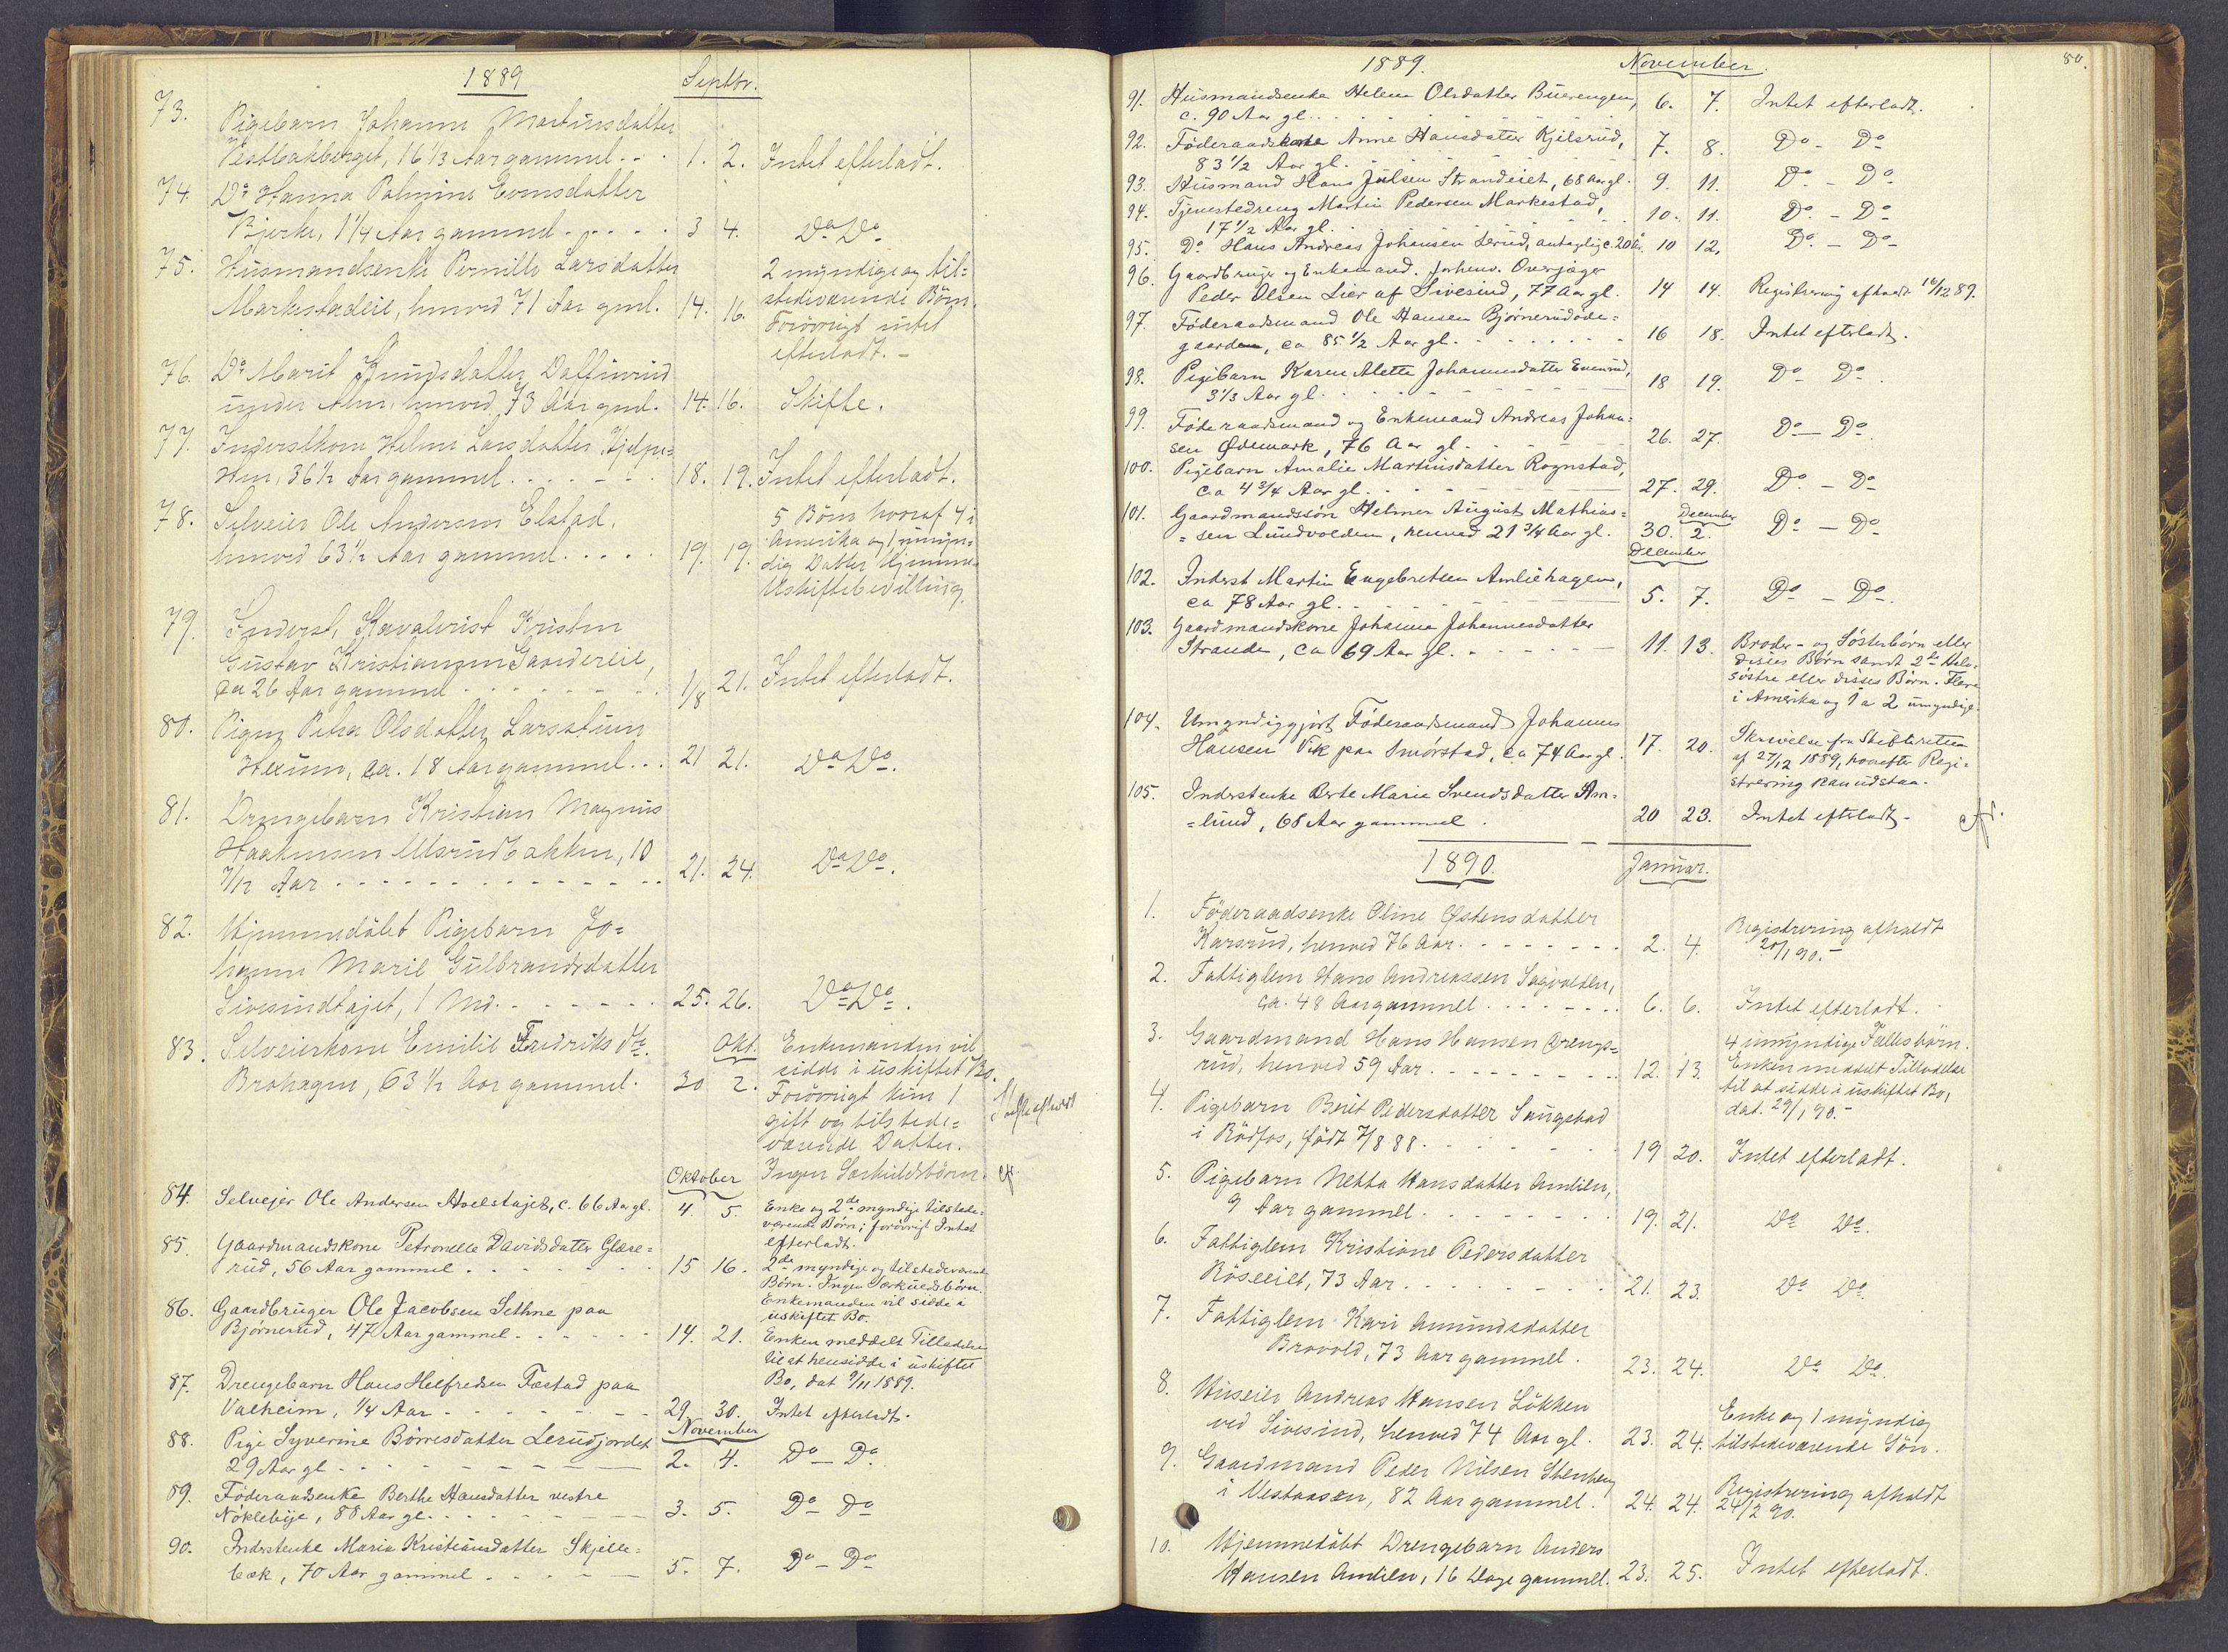 1889 Septbr.
73. Pigebarn Johanne Martinsdatter
Vestbakberget, 16 1/3 Aar gammel . . . 1. 2. Intet efterladt.
74. Do Hanna Palmine Evensdatter
Bjerke, 1 1/4 Aar gammel . . . . . 3 4. Do Do
75. Husmandsenke Pernille Larsdatter 2 myndige og til=
Markestadeie, henved 71 Aar gml. 14. 16. stedeværende Børn.
Forøvrigt intet
efterladt. –
76. Do Marit Knudsdatter Daffinrud
under Alm, henved 73 Aar gml. 14. 16. Skifte.
77. Inderstkone Helene Larsdatter Hjelpe=
36 1/2 Aar gammel . . . . . . 18. 19. Intet efterladt.
78. Selveier Ole Andersen Elstad, 5 Børn hvoraf 4 i
henved 63 1/2 Aar gammel . . . . 19. 19. Amerika og 1 myn=
dig Datter hjemme.
Uskiftebevilling.
79. Inderst, Kavalerist Kristen
Gustav Kristiansen Gaardereie,
ca 26 Aar gammel . . . . . . . 1/8 21. Intet efterladt.
80. Pigen Petra Olsdatter Larsstuen
Hexum, ca. 18 Aar gammel . . . 21 21. Do Do.
81. Drengebarn Kristian Magnus
Haakensen Ulsrudbakken, 10
7/12 Aar . . . . . . . . . . . . . 21. 24. Do Do.
82. Hjemmedøbt Pigebarn Jo=
hanne Marie Gulbrandsdatter
Sivesindhajet, 1 Md. . . . . . . 25. 26. Do Do.
83. Selveierkone Emilie Fredriksdtr. Okt. Enkemanden vil
Brohagen, 63 1/2 Aar gammel. 30 2. sidde i uskiftet Bo.
Forøvrigt kun 1
gift og tilstede=
værende Datter.
Oktober Ingen Særkuldsbørn.
84. Selvejer Ole Andersen Hoelstajet, c. 66 Aar gl. 4 5. Enke og 2de myndige tilstede=
værende Børn; forøvrigt Intet
efterladt.
85. Gaardmandskone Petronelle Davidsdatter Glæse=
rud, 56 Aar gammel . . . . . . 15 16. 2de myndige og tilstedeværende
Børn. Ingen Særkuldsbørn.
Enkemanden vil sidde i
uskiftet Bo.
86. Gaardbruger Ole Jacobsen Sethne paa
Bjørnerud, 47 Aar gammel . . . . . . 14. 21. Enken meddelt Tilladelse
til at hensidde i uskiftet
Bo, dat 9/11 1889.
87. Drengebarn Hans Helfredsen Fæstad paa
Valheim, 1/4 Aar . . . . . . . 29. 30. Intet efterladt.
November
88. Pige Syverine Børresdatter Lerudjordet
29 Aar gl . . . . . . . 2. 4. Do – Do.
89. Føderaadsenke Berthe Hansdatter vestre
Nøklebye, 88 Aar gl. . . . . . 3. 5. Do Do
90. Inderstenke Maria Kristiansdatter Skjelle=
bæk, 70 Aar gammel . . . . . 5. 7. Do – Do
1889. November. 80.
91. Husmandsenke Helene Olsdatter Buerengen,
c. 90 Aar gl. . . . . 6. 7. Intet efterladt.
92. Føderaadskone Anne Hansdatter Kjelsrud,
83 1/2 Aar gl. . . . . 7. 8. Do – Do
93. Husmand Hans Julsen Strandeiet, 68 Aar gl. 9. 11. Do. – Do
94. Tjenestedreng Martin Pedersen Markestad,
17 1/2 Aar gl. . . . . 10. 11. Do. – Do
95. Do Hans Andreas Johansen Lerud, antagelig c. 20 år. 10 12. Do. – Do
96. Gaardbruger og Enkemand. forhenv. Overjæger
Peder Olsen Lier af Sivesind, 77 Aar gl. 14 14. Registrering afholdt 16/12 89.
97. Føderaadsmand Ole Hansen Bjørnerudøde=
gaarden, ca 85 1/2 Aar gl. . . . . . 16 18. Intet efterladt.
98. Pigebarn Karen Alette Johannesdatter Evenrud,
3 1/3 Aar gl. . . . . 18 19. Do – Do.
99. Føderaadsmand og Enkemand Andreas Johan=
sen Ødemark, 76 Aar gl. . . . . 26. 27. Do – Do.
100. Pigebarn Amalie Martinsdatter Rognstad,
ca 4 3/4 Aar gl. . . . . 27. 29. Do. – Do
101. Gaardmandssøn Helmer August Mathias= December
=sen Lundvolden, henved 21 3/4 Aar gl. 30. 2. Do – Do
December
102. Inderst Martin Engebretsen Amliehagen,
ca 78 Aar gl. . . . . 5. 7. Do – Do.
103. Gaardmandskone Johanne Johannesdatter
Strande, ca 69 Aar gl. . . . . 11. 13. Broder- og Søsterbørn eller
disses Børn samt 2de Halv-
søstre eller disses Børn. Flere
i Amerika og 1 a 2 umyndige.
104. Umyndiggjort Føderaadsmand Johannes
Hansen Vik paa Smørstad, ca 74 Aar gl. 17. 20. Skrivelse fra Skifteretten
af 27/12 1889, hvorefter Regi=
strering kan udstaa.
105. Inderstenke Berte Marie Svendsdatter Am=
=lund, 68 Aar gammel . 20 23. Intet efterladt.
1890. Januar.
1. Føderaadsenke Oline Østensdatter
Karsrud, henved 76 Aar. . . . . . 2. 4. Registrering afholdt
20/1 90. –
2. Fattiglem Hans Andreassen Sagvolden,
ca. 48 Aar gammel . . . . . . 6. 6. Intet efterladt.
3. Gaardmand Hans Hansen Dreng=
rud, henved 59 Aar . . . . . . . . 12. 13. 4 umyndige Fællesbørn.
Enken meddelt Tilladelse
til at sidde i uskiftet Bo,
dat. 29/1 90. –
4. Pigebarn Berit Pedersdatter Saugstad
i Rødfos, født 7/8 88. . . . . 19 20. Intet efterladt.
5. Pigebarn Netta Hansdatter Amlien,
9 Aar gammel . . . . . . 19. 21. Do Do.
6. Fattiglem Kristiane Pedersdatter
Røseeiet, 73 Aar . . . . . . 21. 23. Do Do.
7. Fattiglem Kari Amundsdatter
Brovold, 73 Aar gammel . 23. 24. Do Do.
8. Huseier Andreas Hansen Løkken
ved Sivesind, henved 74 Aar gl. 23. 24. Enke og 1 myndig
tilstedeværende Søn.
9. Gaardmand Peder Nilsen Stenberg
i Vestaasen, 82 Aar gammel. 24. 24. Registrering afholdt
24/2 90.
10. Hjemmedøbt Drengebarn Anders
Hansen Amlien, 16 Dage gammel. 23. 25. Intet efterladt.